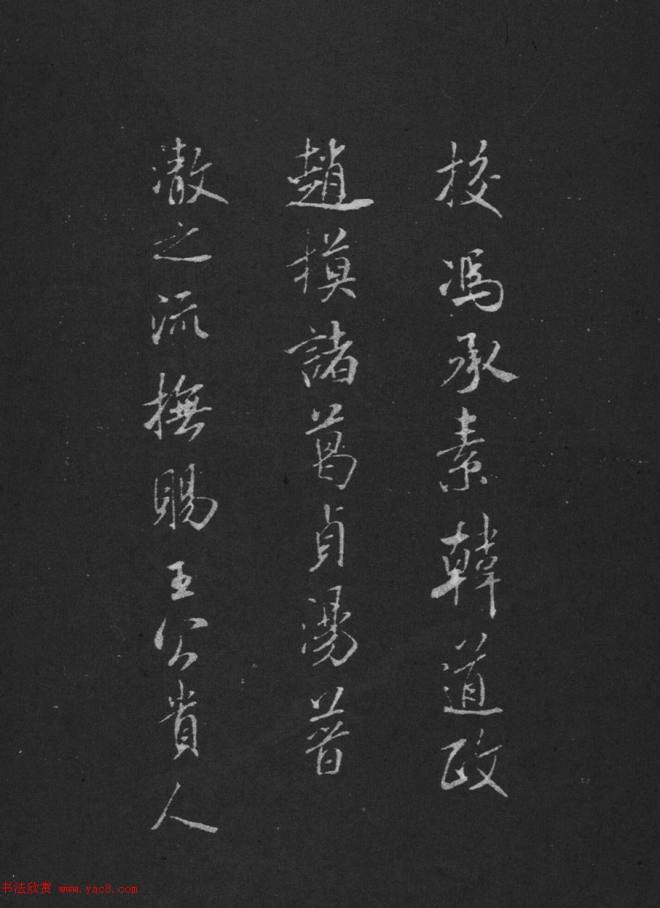 挍馮承素韓道政
趙摸諸葛貞湯普
澈之流撫賜王公貴人
书法欣赏 www.yac8.com